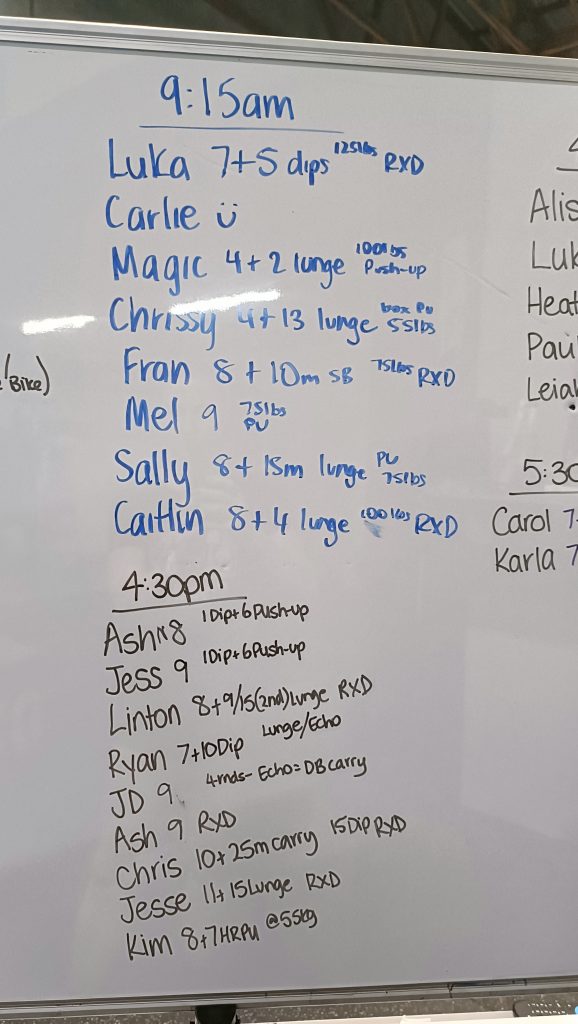 9:15am
Luka 7+5 dips 125lbs RXD
Carlie ü
Magic 4+2 lunge 100lbs Push-up
Chrissy 4+13 lunge box PU 55lbs
Fran 8+10m SB 75lbs RXD
Mel 9 75lbs PU
Sally 8+15m lunge PU 75lbs
Caitlin 8+4 lunge 100lbs RXD
4:30pm
Ash 8 1Dip+6Push-up
Jess 9 1Dip+6Push-up
Linton 8+9/15(2nd)Lunge RXD
Ryan 7+10Dip Lunge/Echo
JD 9 4rnds-Echo=DBcarry
Ash 9 RXD
Chris 10+25mcarry 15Dip RXD
Jesse 11+15Lunge RXD
Kim 8+7HRPU @55kg
Bike)
Alis
Luk
Heat
Pau
Leia
5:30
Carol 7
Karla 7